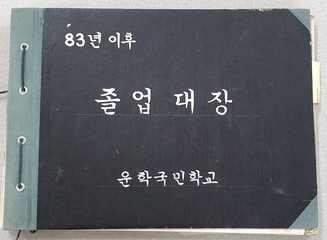 83년 이후
졸업대장
운학국민학교